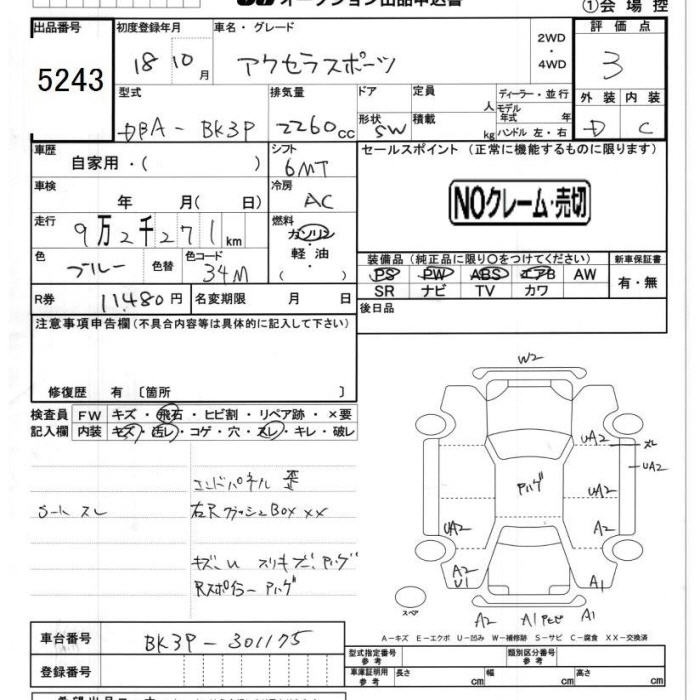 オークション出品申込書
①会場控
出品番号 初度登録年月 車名・グレード 2WD・4WD 評価点
5243 18 10月 アクセラスポーツ 3
型式 排気量 ドア 定員 人 ディーラー・並行 外装 内装
DBA-BK3P 2260cc 形状 SW 積載 kg モデル年式 年 ハンドル 左・右 D C
車歴 自家用・( ) シフト 6MT セールスポイント (正常に機能するものに限ります)
車検 年 月( 日) 冷房 AC
NOクレーム・売切
走行 9万2千271km 燃料 ガソリン・軽油・( )
色 ブルー 色替 色コード 34M
装備品(純正品に限り○をつけてください) 新車保証書
PS PW ABS エアB AW 有・無
SR ナビ TV カワ
R券 11,480円 名変期限 月 日 後日品
注意事項申告欄(不具合内容等は具体的に記入して下さい)
修復歴 有 〔箇所 〕
検査員 FW キズ・飛石・ヒビ割・リペア跡・×要
記入欄 内装 キズ・汚レ・コゲ・穴・スレ・キレ・破レ
エンドパネル 歪
シート スレ 右R クラッシュBOX XX
キズ、U スリキズ、Pハゲ
Rスポイラー Pハゲ
W2
UA2 スレ
UA2
Pハゲ UA2
UA2 A2
A2 U1 A1
スペア A2 A1 A1
A-キズ E-エクボ U-凹み W-補修跡 S-サビ C-腐食 XX-交換済
車台番号 BK3P-301175
登録番号
型式指定番号 参考 類別区分番号 参考
車庫証明用 参考 長さ cm 幅 cm 高さ cm